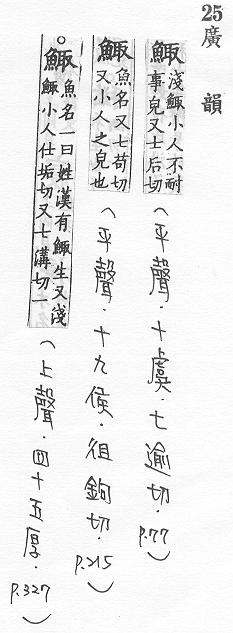 25
廣韻
鯫淺鯫小人不耐
事皃又士后切
(平聲.十虞.七逾切.p.77)
鯫魚名又七苟切
又小人之皃也
(平聲.十九侯.徂鉤切.p.215)
○鯫魚名一曰姓漢有鯫生又淺
鯫小人仕垢切又七溝切一
(上聲.四十五厚.p.327)